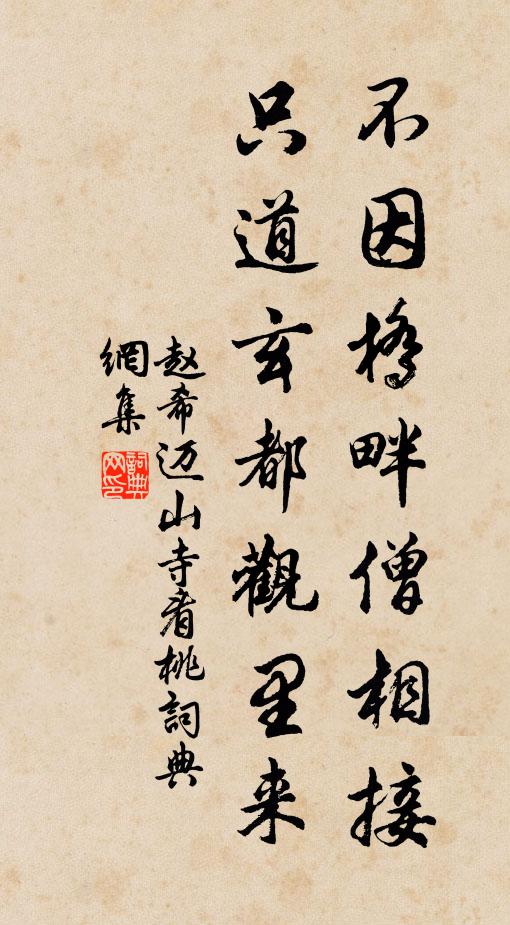 不因橋畔僧相接
只道玄都觀里来
赵希迈山寺看桃詞典
網集
詞典
网印